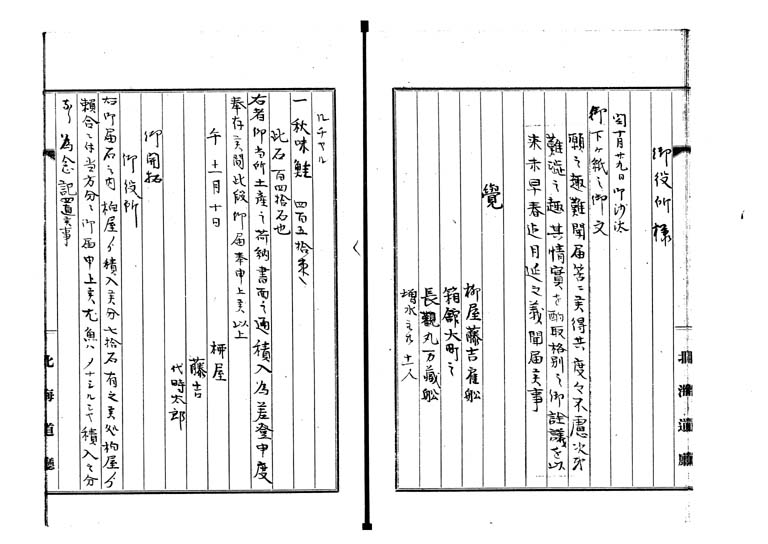 御役所様
閏十月廿九日御沙汰
御下ヶ紙之御文
願之趣難聞届筈ニ候得共度々不慮次第
難渋之趣其情實を酌取格別之御詮議を以
来未早春迄月延之義聞届候事
覺
柳屋藤吉雇舩
箱舘大町之
長觀丸万藏舩
増水主共十一人
ルチヤル
一秋味鮭 四百五拾束
此石百四拾石也
右者御当所土産之荷納書面之通積入為差登申度
奉存候間此段御届奉申上候以上
午十一月十日
柳屋
藤吉
代時太郎
御開拓
御役所
右御届石之内柳屋ゟ積入候分七拾石有之候処柳屋ゟ
頼合之休当方分ニ御届申上候尤魚ハ積入之分
為念記置候事
北海道廳
北海道廳